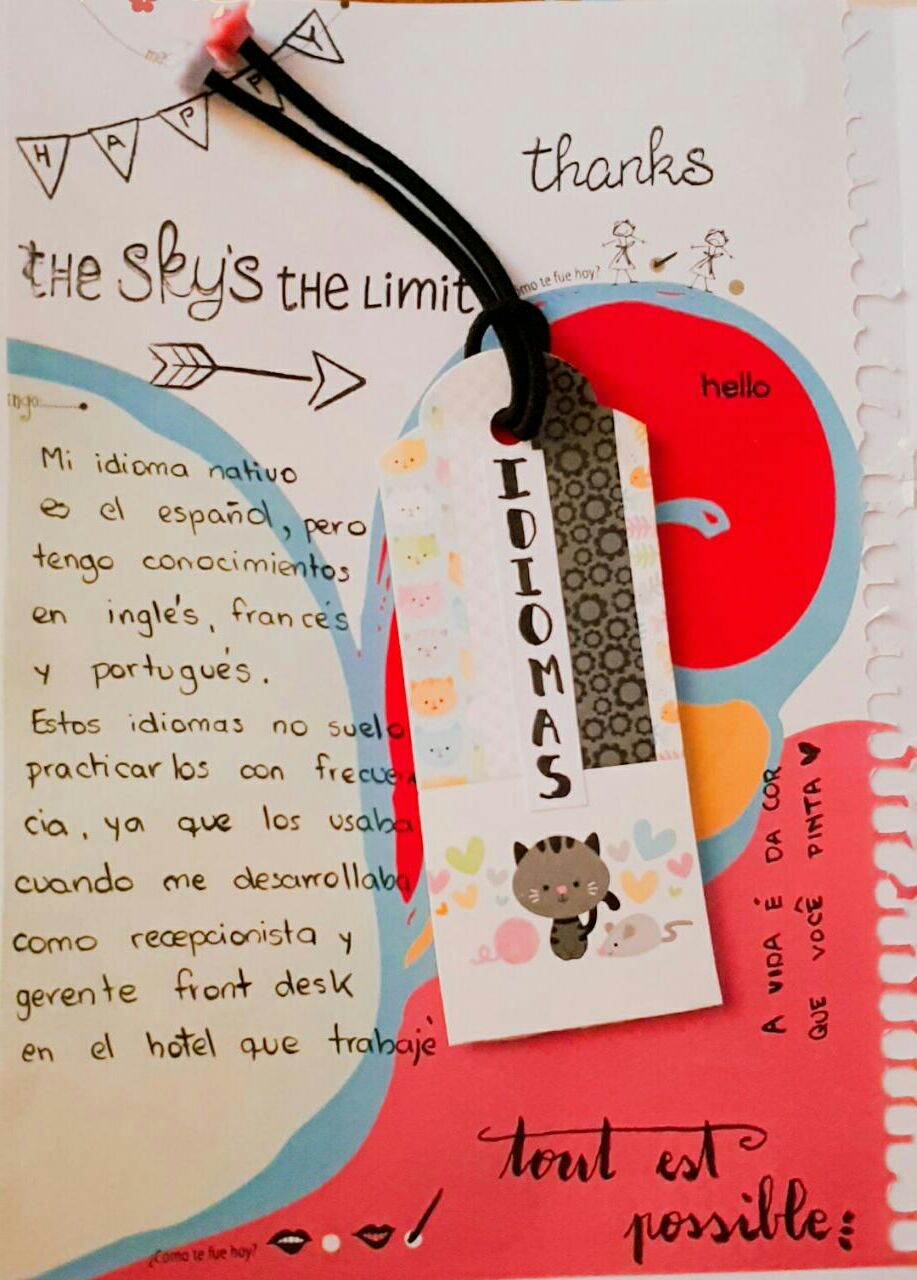 HAPPY
thanks
tHe Sky's tHe Limit
mo te fue hoy?
hello
ngo
Mi idioma nativo
es el español, pero
tengo conocimientos
en inglés, francés
y portugués.
Estos idiomas no suelo
practicarlos con frecuen
cia, ya que los usaba
cuando me desarrollaba
como recepcionista y
gerente front desk
en el hotel que trabajé
IDIOMAS
A VIDA É DA COR
QUE VOCÊ PINTA ♥
tout est
possible...
¿Cómo te fue hoy?